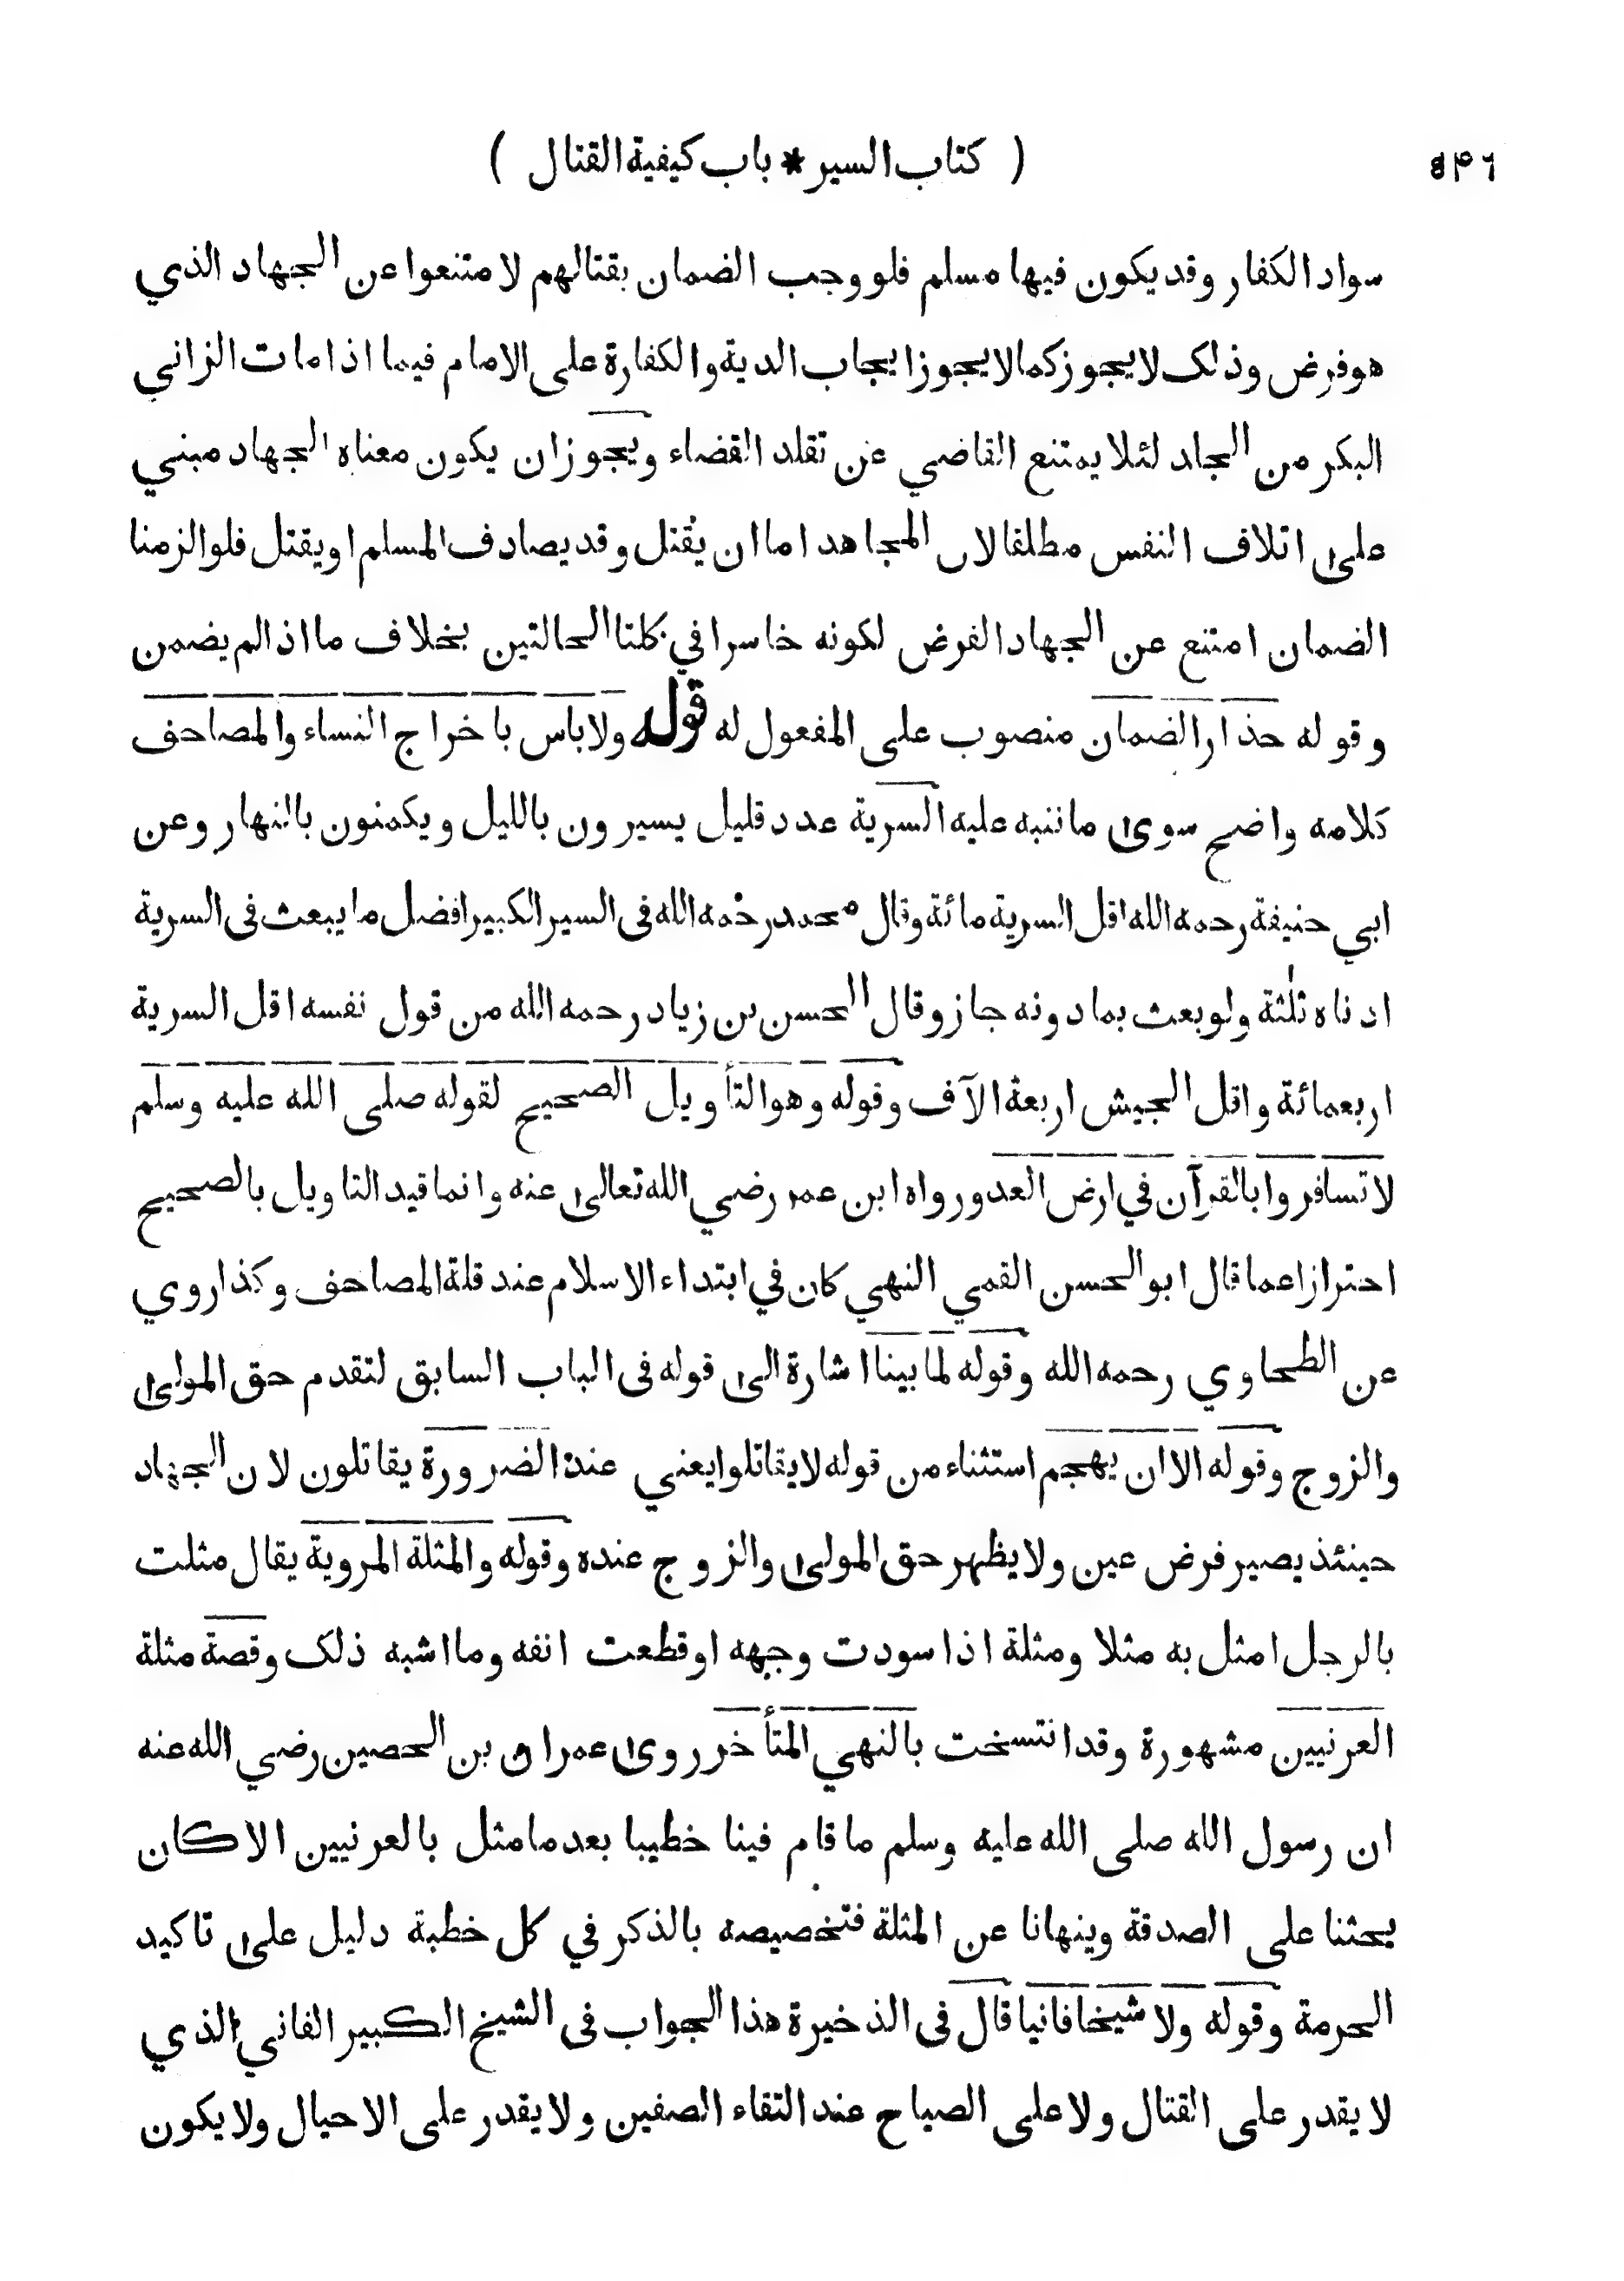 ( كتاب السير * باب كيفية القتال )
سواد الكفار وقد يكون فيها مسلم فلو وجب الضمان بقتالهم لامتنعوا عن الجهاد الذي
هو فرض وذلك لا يجوز كما لا يجوز ايجاب الدية والكفارة على الامام فيما اذا مات الزاني
البكر من الجلد لئلا يمتنع القاضي عن تقلد القضاء ويجوز ان يكون معناه الجهاد مبني
على اتلاف النفس مطلقا لان المجاهد اما ان يُقتل وقد يصادف المسلم او يقتل فلو الزمنا
الضمان امتنع عن الجهاد الفرض لكونه خاسرا في كلتا الحالتين بخلاف ما اذا لم يضمن
وقوله حذار الضمان منصوب على المفعول له قوله ولا باس باخراج النساء والمصاحف
كلامه واضح سوى ما ننبه عليه السرية عدد قليل يسيرون بالليل ويكمنون بالنهار وعن
ابي حنيفة رحمه الله اقل السرية مائة وقال محمد رحمه الله فى السير الكبير افضل ما يبعث فى السرية
ادناه ثلٰثة ولو بعث بما دونه جاز وقال الحسن بن زياد رحمه الله من قول نفسه اقل السرية
اربعمائة واقل الجيش اربعة الآف وقوله وهو التأويل الصحيح لقوله صلى الله عليه وسلم
لا تسافروا بالقرآن في ارض العدو رواه ابن عمر رضي الله تعالى عنه وانما قيد التاويل بالصحيح
احترازا عما قال ابو الحسن القمي النهي كان في ابتداء الاسلام عند قلة المصاحف وكذا روي
عن الطحاوي رحمه الله وقوله لما بينا اشارة الى قوله فى الباب السابق لتقدم حق المولى
والزوج وقوله الا ان يهجم استثناء من قوله لا يقاتلوا يعني عند الضرورة يقاتلون لان الجهاد
حينئذ يصير فرض عين ولا يظهر حق المولى والزوج عنده وقوله والمثلة المروية يقال مثلت
بالرجل امثل به مثلا ومثلة اذا سودت وجهه او قطعت انفه وما اشبه ذلك وقصة مثلة
العرنيين مشهورة وقد انتسخت بالنهي المتأخر روى عمران بن الحصين رضي الله عنه
ان رسول الله صلى الله عليه وسلم ما قام فينا خطيبا بعد ما مثل بالعرنيين الا كان
يحثنا على الصدقة وينهانا عن المثلة فتخصيصه بالذكر في كل خطبة دليل على تاكيد
الحرمة وقوله ولا شيخا فانيا قال فى الذخيرة هذا الجواب فى الشيخ الكبير الفاني الذي
لا يقدر على القتال ولا على الصياح عند التقاء الصفين ولا يقدر على الاحبال ولا يكون